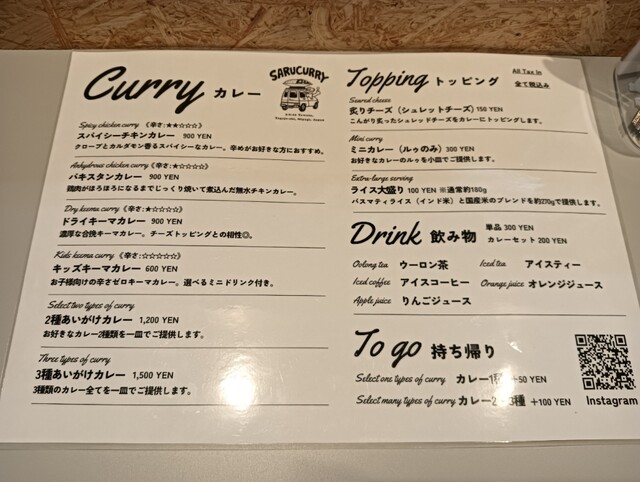 Curry カレー
SARUCURRY
Spicy chicken curry 《辛さ:★★☆☆☆》
スパイシーチキンカレー 900 YEN
クローブとカルダモン香るスパイシーなカレー。辛めがお好きな方におすすめ。
Anhydrous chicken curry 《辛さ:★☆☆☆☆》
パキスタンカレー 900 YEN
鶏肉がほろほろになるまでじっくり焼いて煮込んだ無水チキンカレー。
Dry keema curry 《辛さ:★☆☆☆☆》
ドライキーマカレー 900 YEN
濃厚な合挽キーマカレー。チーズトッピングとの相性◎。
Kids keema curry 《辛さ:☆☆☆☆☆》
キッズキーマカレー 600 YEN
お子様向けの辛さゼロキーマカレー。選べるミニドリンク付き。
Select two types of curry
2種あいがけカレー 1,200 YEN
お好きなカレー2種類を一皿でご提供します。
Three types of curry
3種あいがけカレー 1,500 YEN
3種類のカレー全てを一皿でご提供します。
Topping トッピング
All Tax in
全て税込み
Seared cheese
炙りチーズ（シュレットチーズ）150 YEN
こんがり炙ったシュレッドチーズをカレーにトッピングします。
Mini curry
ミニカレー（ルゥのみ）300 YEN
お好きなカレーのルゥを小皿でご提供します。
Extra-large serving
ライス大盛り 100 YEN ※通常約180g
バスマティライス（インド米）と国産米のブレンドを約270gで提供します。
Drink 飲み物
単品 300 YEN
カレーセット 200 YEN
Oolong tea ウーロン茶 Iced tea アイスティー
Iced coffee アイスコーヒー Orange juice オレンジジュース
Apple juice りんごジュース
To go 持ち帰り
Select one types of curry カレー1種 +50 YEN
Select many types of curry カレー2 3種 +100 YEN
Instagram